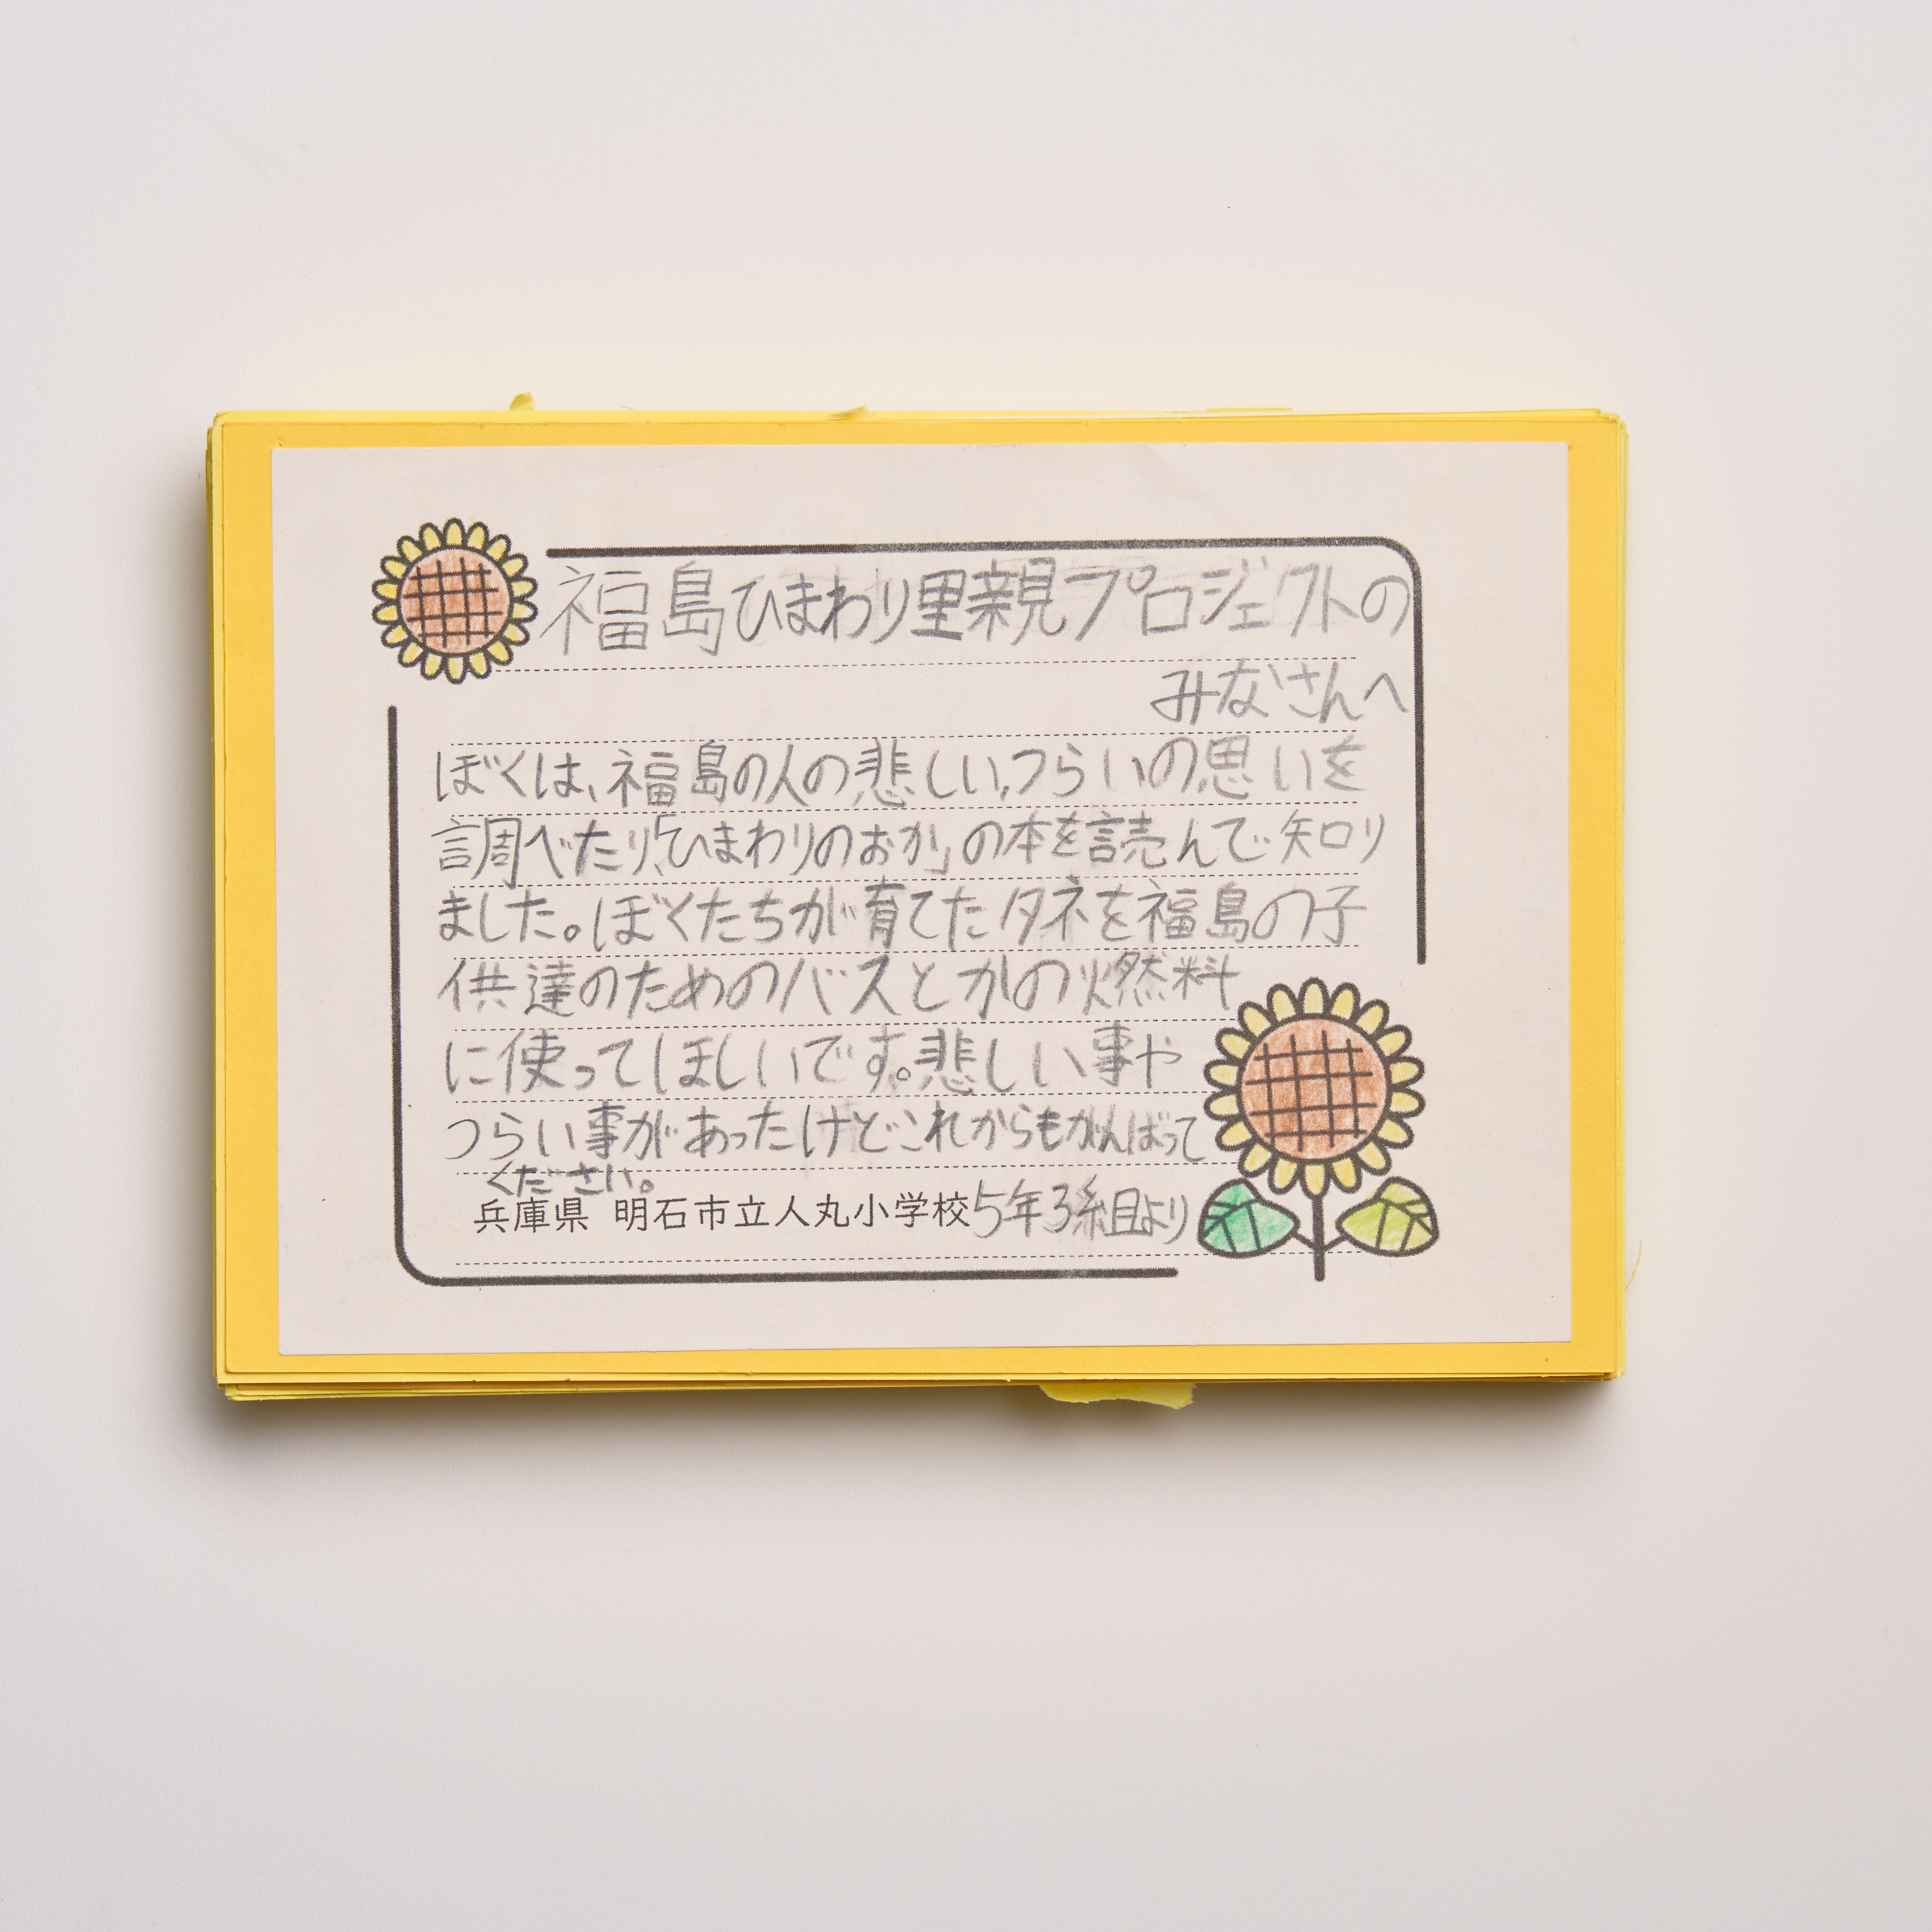 福島ひまわり里親プロジェクトの
みなさんへ
ぼくは、福島の人の悲しい、つらいの思いを
調べたり、「ひまわりのおか」の本を読んで知り
ました。ぼくたちが育てたタネを福島の子
供達のためのバスとかの燃料
に使ってほしいです。悲しい事や
つらい事があったけどこれからもがんばって
ください。
兵庫県 明石市立人丸小学校5年3組より